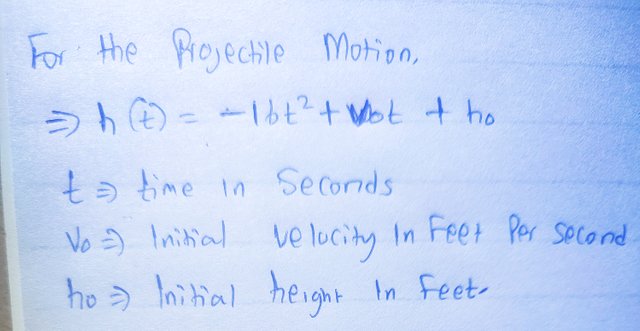 For the Projectile Motion,
⇒ h(t) = -16t² + v₀t + h₀
t ⇒ time in Seconds
V₀ ⇒ Initial velocity In Feet Per second
h₀ ⇒ Initial height In Feet.